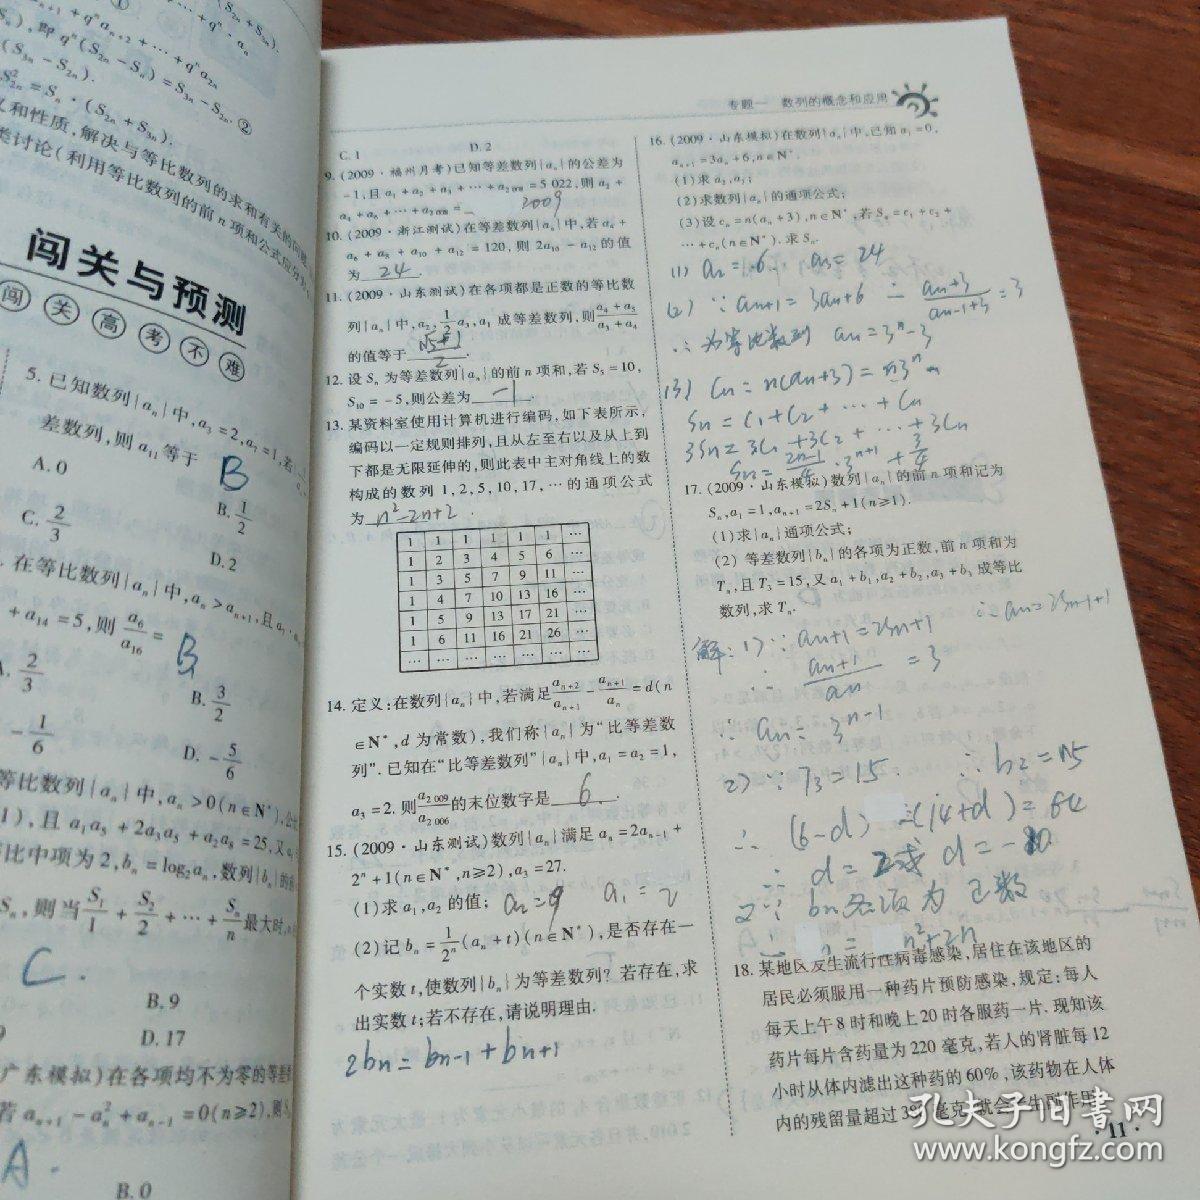 S₂ₙ² = Sₙ · (S₂ₙ + S₃ₙ).
闯关与预测
闯 关 高 考 不 难
5. 已知数列{aₙ}中,a₃=2,a₇=1,若
差数列,则 a₁₁ 等于 B
A. 0
B. 1/2
C. 2/3
D. 2
在等比数列{aₙ}中,aₙ>aₙ₊₁,且
+a₁₄=5,则 a₆/a₁₆ = B
2/3
B. 3/2
-1/6
D. -5/6
等比数列{aₙ}中,aₙ>0(n∈N*),
且 a₁a₅+2a₃a₅+a₂a₈=25,又
比中项为2,bₙ=log₂aₙ,数列{bₙ}的
Sₙ,则当 S₁/1+S₂/2+…+Sₙ/n 最大时,
C.
B. 9
D. 17
广东模拟)在各项均不为零的等差
若 aₙ₊₁-aₙ²+aₙ₋₁=0(n≥2),则
A.
B. 0
专题一 数列的概念和应用
C. 1
D. 2
9. (2009·福州月考)已知等差数列{aₙ}的公差为
-1,且 a₁+a₂+a₃+…+a₂₀₀₈=5 022,则 a₃+
a₆+a₉+…+a₂₀₀₈= 2009
10. (2009·浙江测试)在等差数列{aₙ}中,若 a₄+
a₆+a₈+a₁₀+a₁₂=120,则 2a₁₀-a₁₂ 的值
为 24.
11. (2009·山东测试)在各项都是正数的等比数
列{aₙ}中,a₂,1/2 a₃,a₁ 成等差数列,则 (a₄+a₅)/(a₃+a₄)
的值等于 (√5+1)/2.
12. 设 Sₙ 为等差数列{aₙ}的前 n 项和,若 S₅=10,
S₁₀=-5,则公差为 -1.
13. 某资料室使用计算机进行编码,如下表所示,
编码以一定规则排列,且从左至右以及从上到
下都是无限延伸的,则此表中主对角线上的数
构成的数列 1,2,5,10,17,…的通项公式
为 n²-2n+2.
1 1 1 1 1 1 …
1 2 3 4 5 6 …
1 3 5 7 9 11 …
1 4 7 10 13 16 …
1 5 9 13 17 21 …
1 6 11 16 21 26 …
… … … … … … …
14. 定义:在数列{aₙ}中,若满足 aₙ₊₂/aₙ₊₁ - aₙ₊₁/aₙ = d(n
∈N*,d 为常数),我们称{aₙ}为“比等差数
列”. 已知在“比等差数列”{aₙ}中,a₁=a₂=1,
a₃=2. 则 a₂₀₀₉/a₂₀₀₆ 的末位数字是 6.
15. (2009·山东测试)数列{aₙ}满足 aₙ=2aₙ₋₁+
2ⁿ+1(n∈N*,n≥2),a₃=27.
(1)求 a₁,a₂ 的值; a₂=9 a₁=2
(2)记 bₙ=1/2ⁿ(aₙ+t)(n∈N*),是否存在一
个实数 t,使数列{bₙ}为等差数列? 若存在,求
出实数 t;若不存在,请说明理由.
2bn=bn-1+bn+1
16. (2009·山东模拟)在数列{aₙ}中,已知 a₁=0,
aₙ₊₁=3aₙ+6,n∈N*.
(1)求 a₂,a₃;
(2)求数列{aₙ}的通项公式;
(3)设 cₙ=n(aₙ+3),n∈N*,若 Sₙ=c₁+c₂+
…+cₙ(n∈N*). 求 Sₙ.
(1) a₂=6. a₃=24
(2) ∵an+1=3an+6 ∴ (an+3)/(an-1+3)=3
∴为等比数列 an=3ⁿ-3
(3) Cn=n(an+3)=n3ⁿ
Sn=C1+C2+…+Cn
3Sn=3C1+3C2+…+3Cn
Sn=(2n-1)/4·3ⁿ⁺¹+3/4
17. (2009·山东模拟)数列{aₙ}的前 n 项和记为
Sₙ,a₁=1,aₙ₊₁=2Sₙ+1(n≥1).
(1)求{aₙ}通项公式;
(2) 等差数列{bₙ}的各项为正数,前 n 项和为
Tₙ,且 T₃=15,又 a₁+b₁,a₂+b₂,a₃+b₃ 成等比
数列,求 Tₙ.
解:1)∵an+1=2Sn+1 ∴an=2Sn-1+1
∴ an+1/an=3
∴an=3ⁿ⁻¹
2)∵T3=15. ∴b2=5
∴(6-d) (14+d)=64
∴d=2或d=-10
又∵bn各项为正数
n²+2n
18. 某地区发生流行性病毒感染,居住在该地区的
居民必须服用一种药片预防感染,规定:每人
每天上午8时和晚上20时各服药一片. 现知该
药片每片含药量为220毫克,若人的肾脏每12
小时从体内滤出这种药的60%,该药物在人体
内的残留量超过38 毫克,就会产生副作用
·11·
孔夫子旧书网
www.kongfz.com